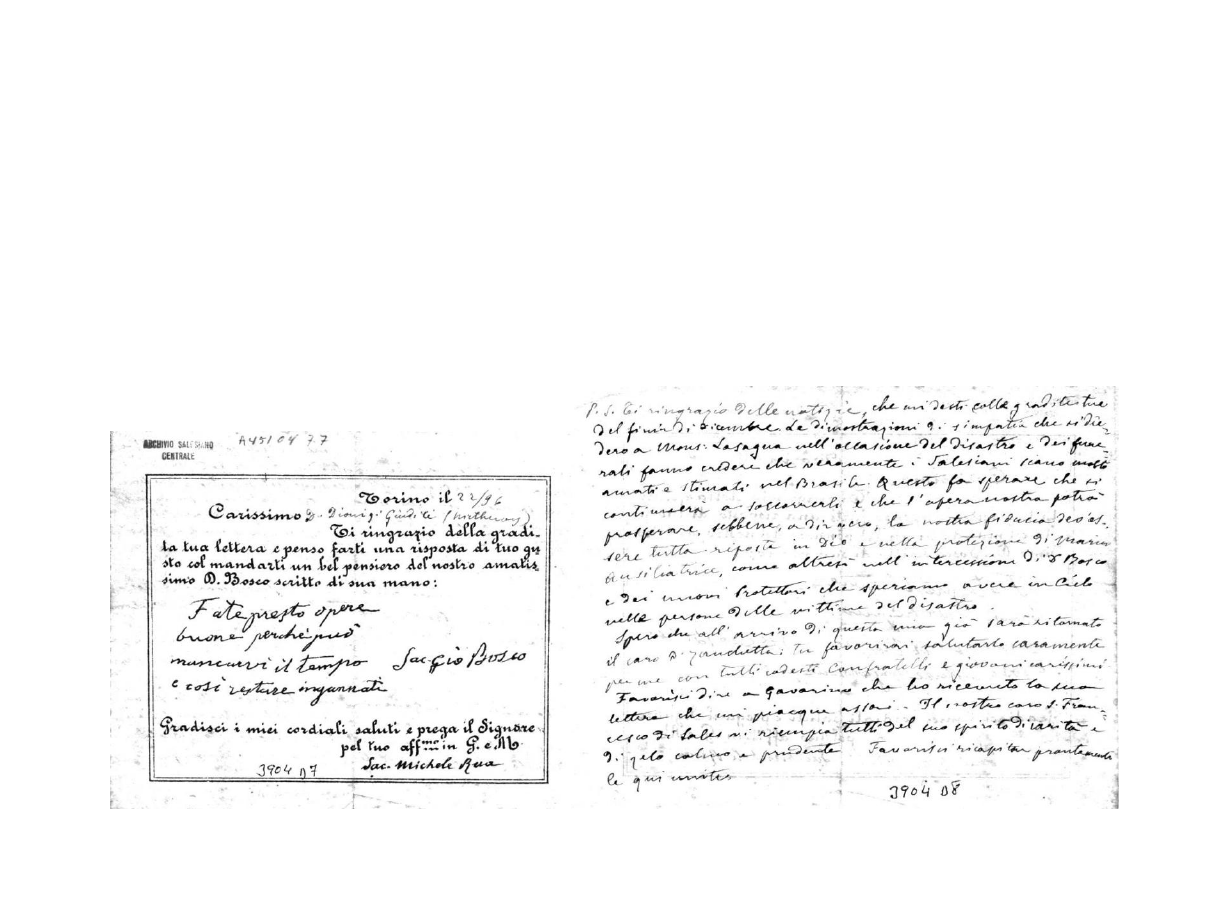 ARCHIVIO SALESIANO
CENTRALE
A4510477
Torino il 22/96
Carissimo D. Dionigi Giudici (Nictheroy)
Ti ringrazio della gradi-
ta tua lettera e penso farti una risposta di tuo gu
sto col mandarti un bel pensiero del nostro amatis
simo D. Bosco scritto di sua mano:
Fate presto opere
buone perché può
mancarvi il tempo Sac Gio Bosco
e così restare ingannati
Gradisci i miei cordiali saluti e prega il Signore
pel tuo aff.mo in G. e M.
Sac. Michele Rua
3904 D7
P. S. Ti ringrazio delle notizie, che mi desti colle gradite tue
del fini di Dicembre. Le dimostrazioni di simpatia che si die-
dero a Mons. Lasagna nell'occasione del disastro e dei fune-
rali fanno credere che veramente i Salesiani siano molto
amati e stimati nel Brasile. Questo fa sperare che si
continuerà a soccorrerli e che l'opera nostra potrà
prosperare, sebbene, a dir vero, la nostra fiducia dev'es-
sere tutta riposta in Dio e nella protezione di Maria
Ausiliatrice, come altresì nell'intercessione di D Bosco
e dei nuovi Protettori che speriamo avere in Cielo
nelle persone delle vittime del disastro.
Spero che all'arrivo di questa mia già sarà ritornato
il caro D. Zanchetta: tu favorirai salutarlo caramente
per me con tutti codesti Confratelli e giovani carissimi
Favorisci dire a Gavarino che ho ricevuto la sua
lettera che mi piacque assai. Il nostro caro S. Fran-
cesco di Sales vi riempia tutti del suo spirito di carità e
di zelo calmo e prudente Favorisci ricapitar prontamente
le qui unite
3904 D8